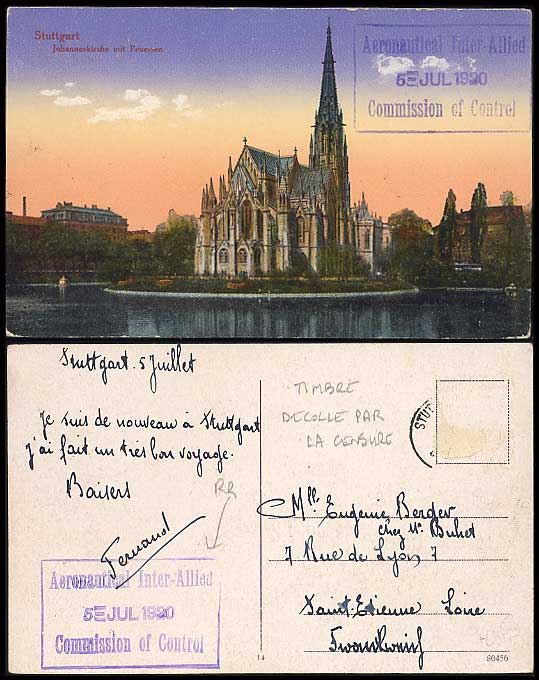 Stuttgart
Johanneskirche mit Feuersee.
Aeronautical Inter-Allied
5 JUL 1920
Commission of Control
Stuttgart. 5 Juillet
Je suis de nouveau à Stuttgart
j'ai fait un très bon voyage.
Baisers
Fernand
RR
Aeronautical Inter-Allied
5 JUL 1920
Commission of Control
TIMBRE
DECOLLE PAR
LA CENSURE
STU
Mlle Eugénie Berger
chez Mr Buhot
7 Rue de Lyon 7
Saint-Etienne Loire
14
80456